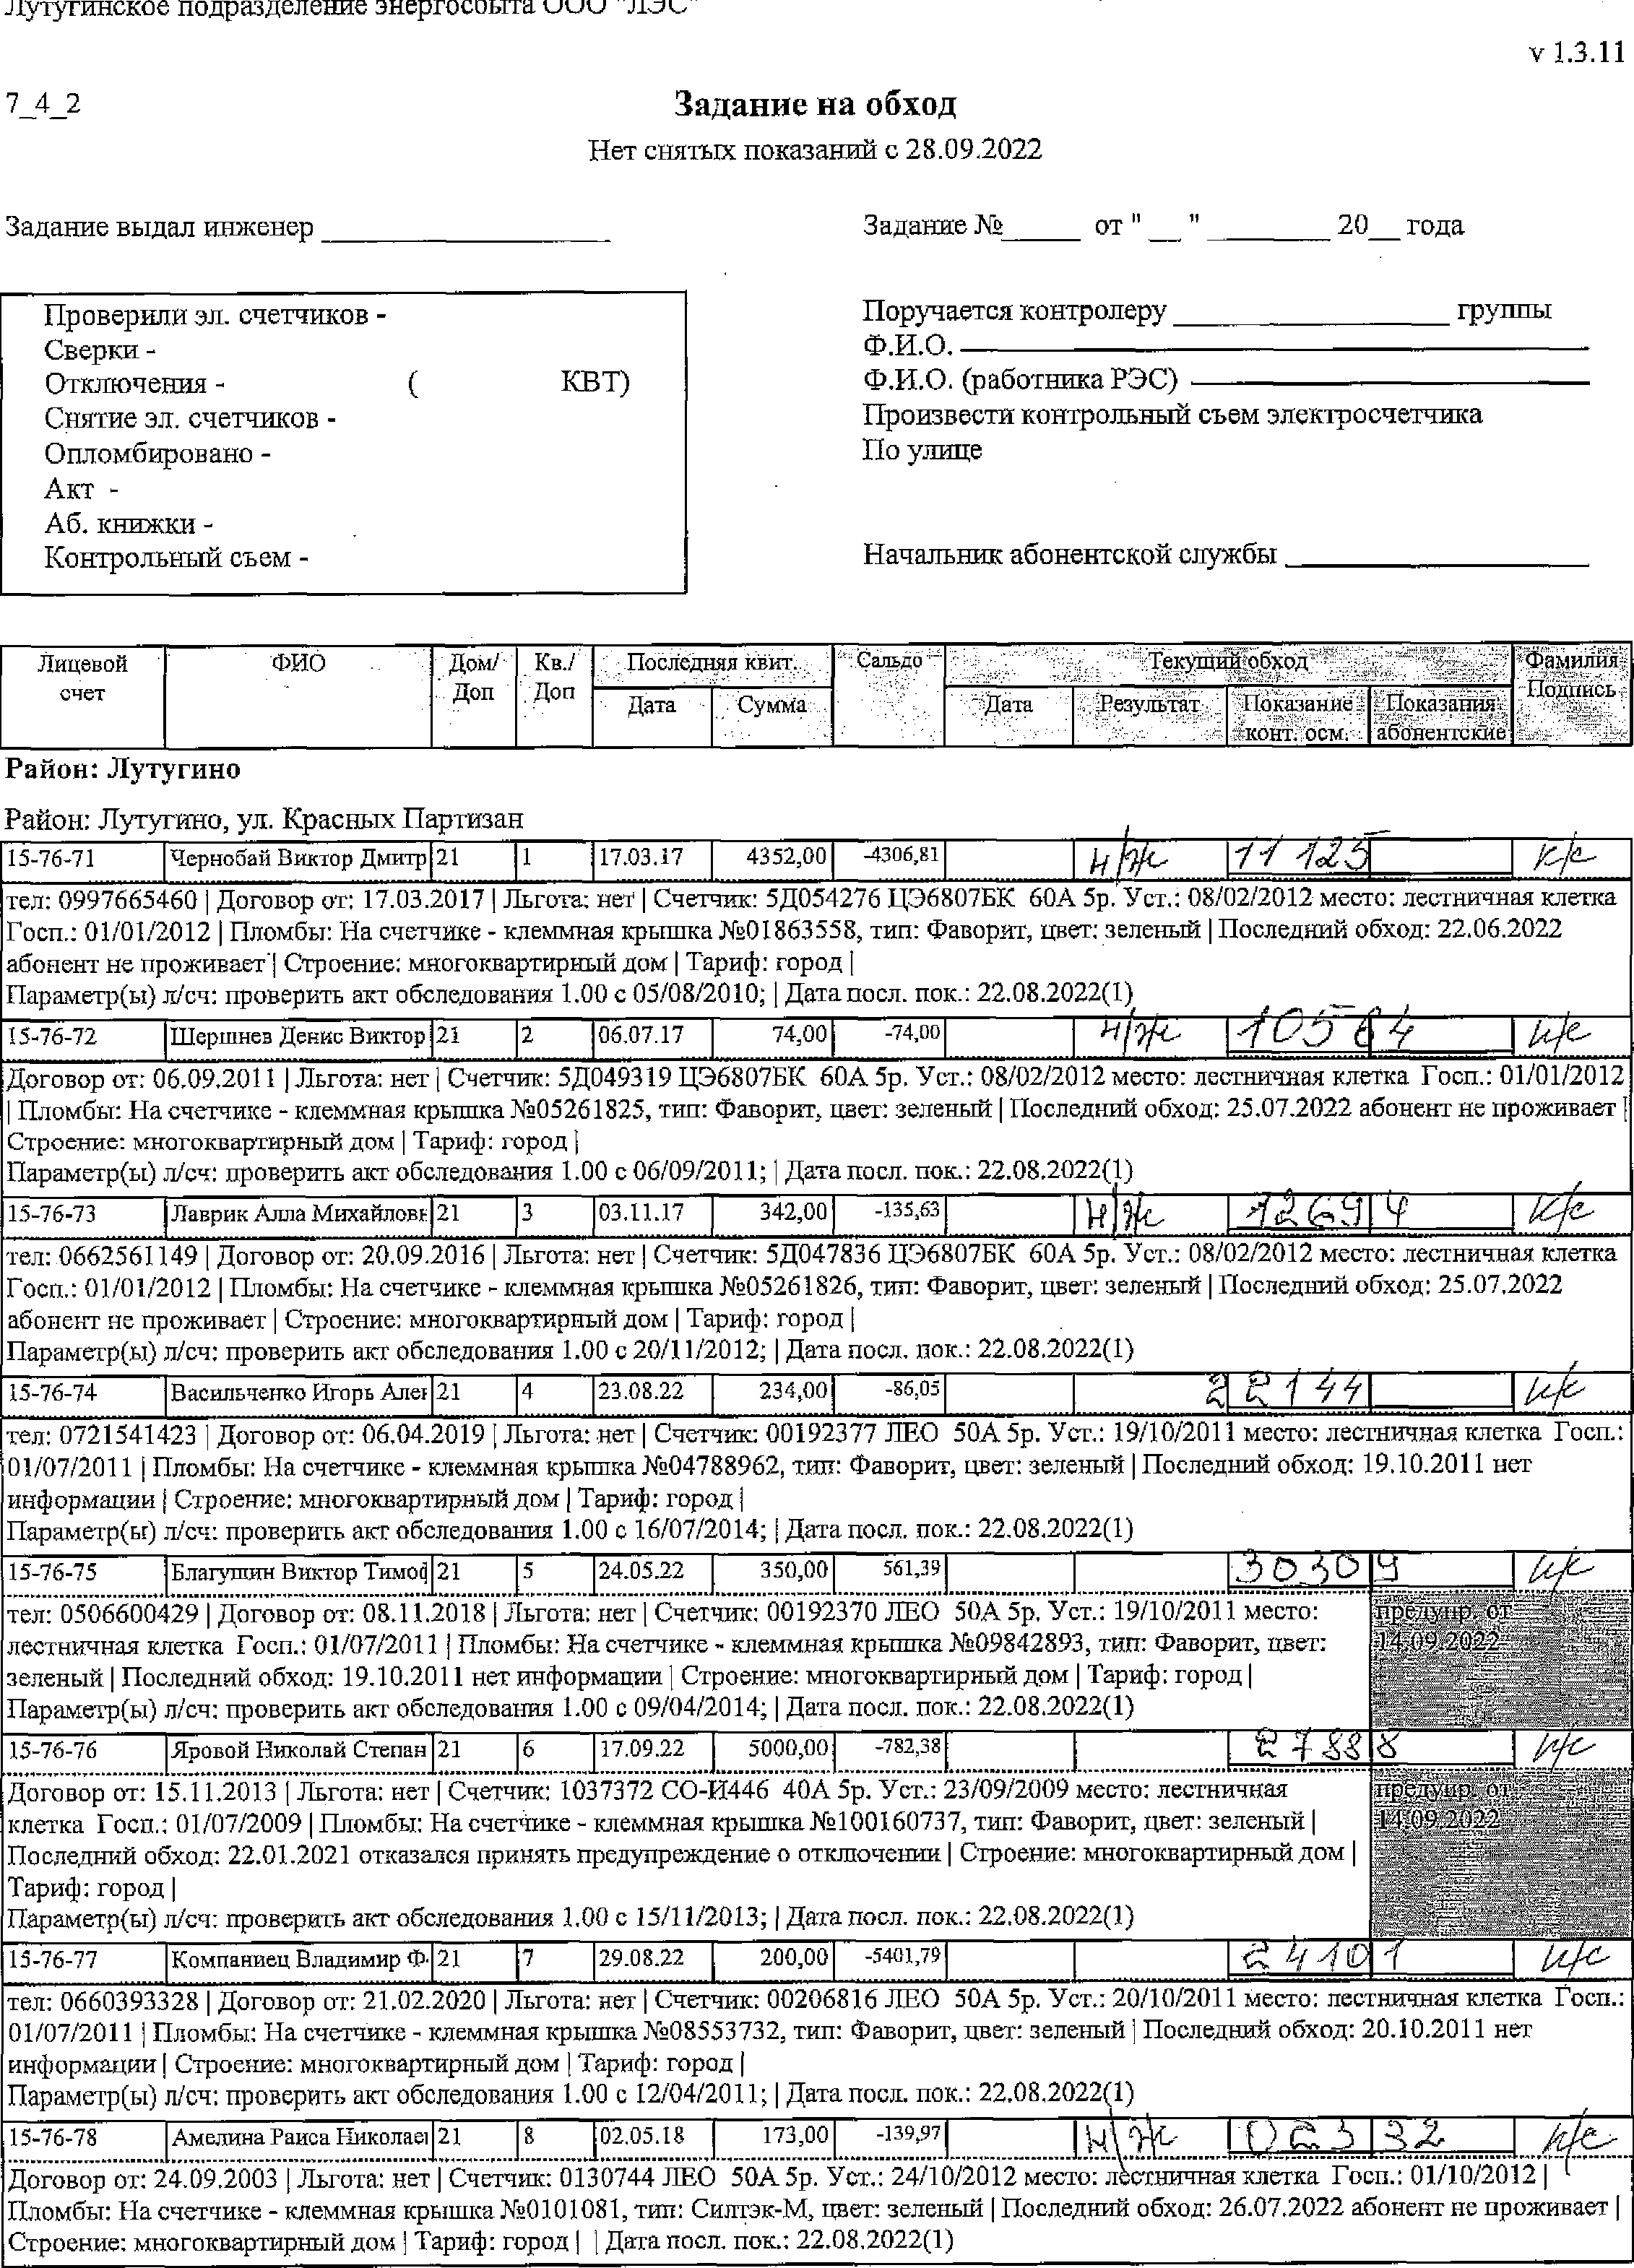 Лутугинское подразделение энергосбыта ООО "ЛЭС"
v 1.3.11
7_4_2
Задание на обход
Нет снятых показаний с 28.09.2022
Задание выдал инженер ____________ Задание №_____ от " __ " ________ 20__ года
Проверили эл. счетчиков -
Сверки -
Отключения - ( КВТ)
Снятие эл. счетчиков -
Опломбировано -
Акт -
Аб. книжки -
Контрольный съем -
Поручается контролеру ____________ группы
Ф.И.О.
Ф.И.О. (работника РЭС)
Произвести контрольный съем электросчетчика
По улице
Начальник абонентской службы ____________
Лицевой счет ФИО Дом/ Доп Кв./ Доп Последняя квит. Дата Сумма Сальдо Текущий обход Дата Результат Показание конт. осм. Показания абонентские Фамилия Подпись
Район: Лутугино
Район: Лутугино, ул. Красных Партизан
15-76-71 Чернобай Виктор Дмитр 21 1 17.03.17 4352,00 -4306,81 н/ж 11125 к/с
тел: 0997665460 | Договор от: 17.03.2017 | Льгота: нет | Счетчик: 5Д054276 ЦЭ6807БК 60А 5р. Уст.: 08/02/2012 место: лестничная клетка
Госп.: 01/01/2012 | Пломбы: На счетчике - клеммная крышка №01863558, тип: Фаворит, цвет: зеленый | Последний обход: 22.06.2022
абонент не проживает | Строение: многоквартирный дом | Тариф: город |
Параметр(ы) л/сч: проверить акт обследования 1.00 с 05/08/2010; | Дата посл. пок.: 22.08.2022(1)
15-76-72 Шершнев Денис Виктор 21 2 06.07.17 74,00 -74,00 н/ж 10564 к/с
Договор от: 06.09.2011 | Льгота: нет | Счетчик: 5Д049319 ЦЭ6807БК 60А 5р. Уст.: 08/02/2012 место: лестничная клетка Госп.: 01/01/2012
| Пломбы: На счетчике - клеммная крышка №05261825, тип: Фаворит, цвет: зеленый | Последний обход: 25.07.2022 абонент не проживает |
Строение: многоквартирный дом | Тариф: город |
Параметр(ы) л/сч: проверить акт обследования 1.00 с 06/09/2011; | Дата посл. пок.: 22.08.2022(1)
15-76-73 Лаврик Алла Михайловн 21 3 03.11.17 342,00 -135,63 н/ж 12694 к/с
тел: 0662561149 | Договор от: 20.09.2016 | Льгота: нет | Счетчик: 5Д047836 ЦЭ6807БК 60А 5р. Уст.: 08/02/2012 место: лестничная клетка
Госп.: 01/01/2012 | Пломбы: На счетчике - клеммная крышка №05261826, тип: Фаворит, цвет: зеленый | Последний обход: 25.07.2022
абонент не проживает | Строение: многоквартирный дом | Тариф: город |
Параметр(ы) л/сч: проверить акт обследования 1.00 с 20/11/2012; | Дата посл. пок.: 22.08.2022(1)
15-76-74 Васильченко Игорь Алек 21 4 23.08.22 234,00 -86,05 22144 к/с
тел: 0721541423 | Договор от: 06.04.2019 | Льгота: нет | Счетчик: 00192377 ЛЕО 50А 5р. Уст.: 19/10/2011 место: лестничная клетка Госп.:
01/07/2011 | Пломбы: На счетчике - клеммная крышка №04788962, тип: Фаворит, цвет: зеленый | Последний обход: 19.10.2011 нет
информации | Строение: многоквартирный дом | Тариф: город |
Параметр(ы) л/сч: проверить акт обследования 1.00 с 16/07/2014; | Дата посл. пок.: 22.08.2022(1)
15-76-75 Благушин Виктор Тимоф 21 5 24.05.22 350,00 561,39 30309 к/с
тел: 0506600429 | Договор от: 08.11.2018 | Льгота: нет | Счетчик: 00192370 ЛЕО 50А 5р. Уст.: 19/10/2011 место: предупр. от
лестничная клетка Госп.: 01/07/2011 | Пломбы: На счетчике - клеммная крышка №09842893, тип: Фаворит, цвет: 14.09.2022
зеленый | Последний обход: 19.10.2011 нет информации | Строение: многоквартирный дом | Тариф: город |
Параметр(ы) л/сч: проверить акт обследования 1.00 с 09/04/2014; | Дата посл. пок.: 22.08.2022(1)
15-76-76 Яровой Николай Степан 21 6 17.09.22 5000,00 -782,38 27888 к/с
Договор от: 15.11.2013 | Льгота: нет | Счетчик: 1037372 СО-И446 40А 5р. Уст.: 23/09/2009 место: лестничная предупр. от
клетка Госп.: 01/07/2009 | Пломбы: На счетчике - клеммная крышка №100160737, тип: Фаворит, цвет: зеленый | 14.09.2022
Последний обход: 22.01.2021 отказался принять предупреждение о отключении | Строение: многоквартирный дом |
Тариф: город |
Параметр(ы) л/сч: проверить акт обследования 1.00 с 15/11/2013; | Дата посл. пок.: 22.08.2022(1)
15-76-77 Компаниец Владимир Ф. 21 7 29.08.22 200,00 -5401,79 24101 к/с
тел: 0660393328 | Договор от: 21.02.2020 | Льгота: нет | Счетчик: 00206816 ЛЕО 50А 5р. Уст.: 20/10/2011 место: лестничная клетка Госп.:
01/07/2011 | Пломбы: На счетчике - клеммная крышка №08553732, тип: Фаворит, цвет: зеленый | Последний обход: 20.10.2011 нет
информации | Строение: многоквартирный дом | Тариф: город |
Параметр(ы) л/сч: проверить акт обследования 1.00 с 12/04/2011; | Дата посл. пок.: 22.08.2022(1)
15-76-78 Амелина Раиса Николаев 21 8 02.05.18 173,00 -139,97 н/ж к/с
Договор от: 24.09.2003 | Льгота: нет | Счетчик: 0130744 ЛЕО 50А 5р. Уст.: 24/10/2012 место: лестничная клетка Госп.: 01/10/2012 |
Пломбы: На счетчике - клеммная крышка №0101081, тип: Силтэк-М, цвет: зеленый | Последний обход: 26.07.2022 абонент не проживает |
Строение: многоквартирный дом | Тариф: город | | Дата посл. пок.: 22.08.2022(1)